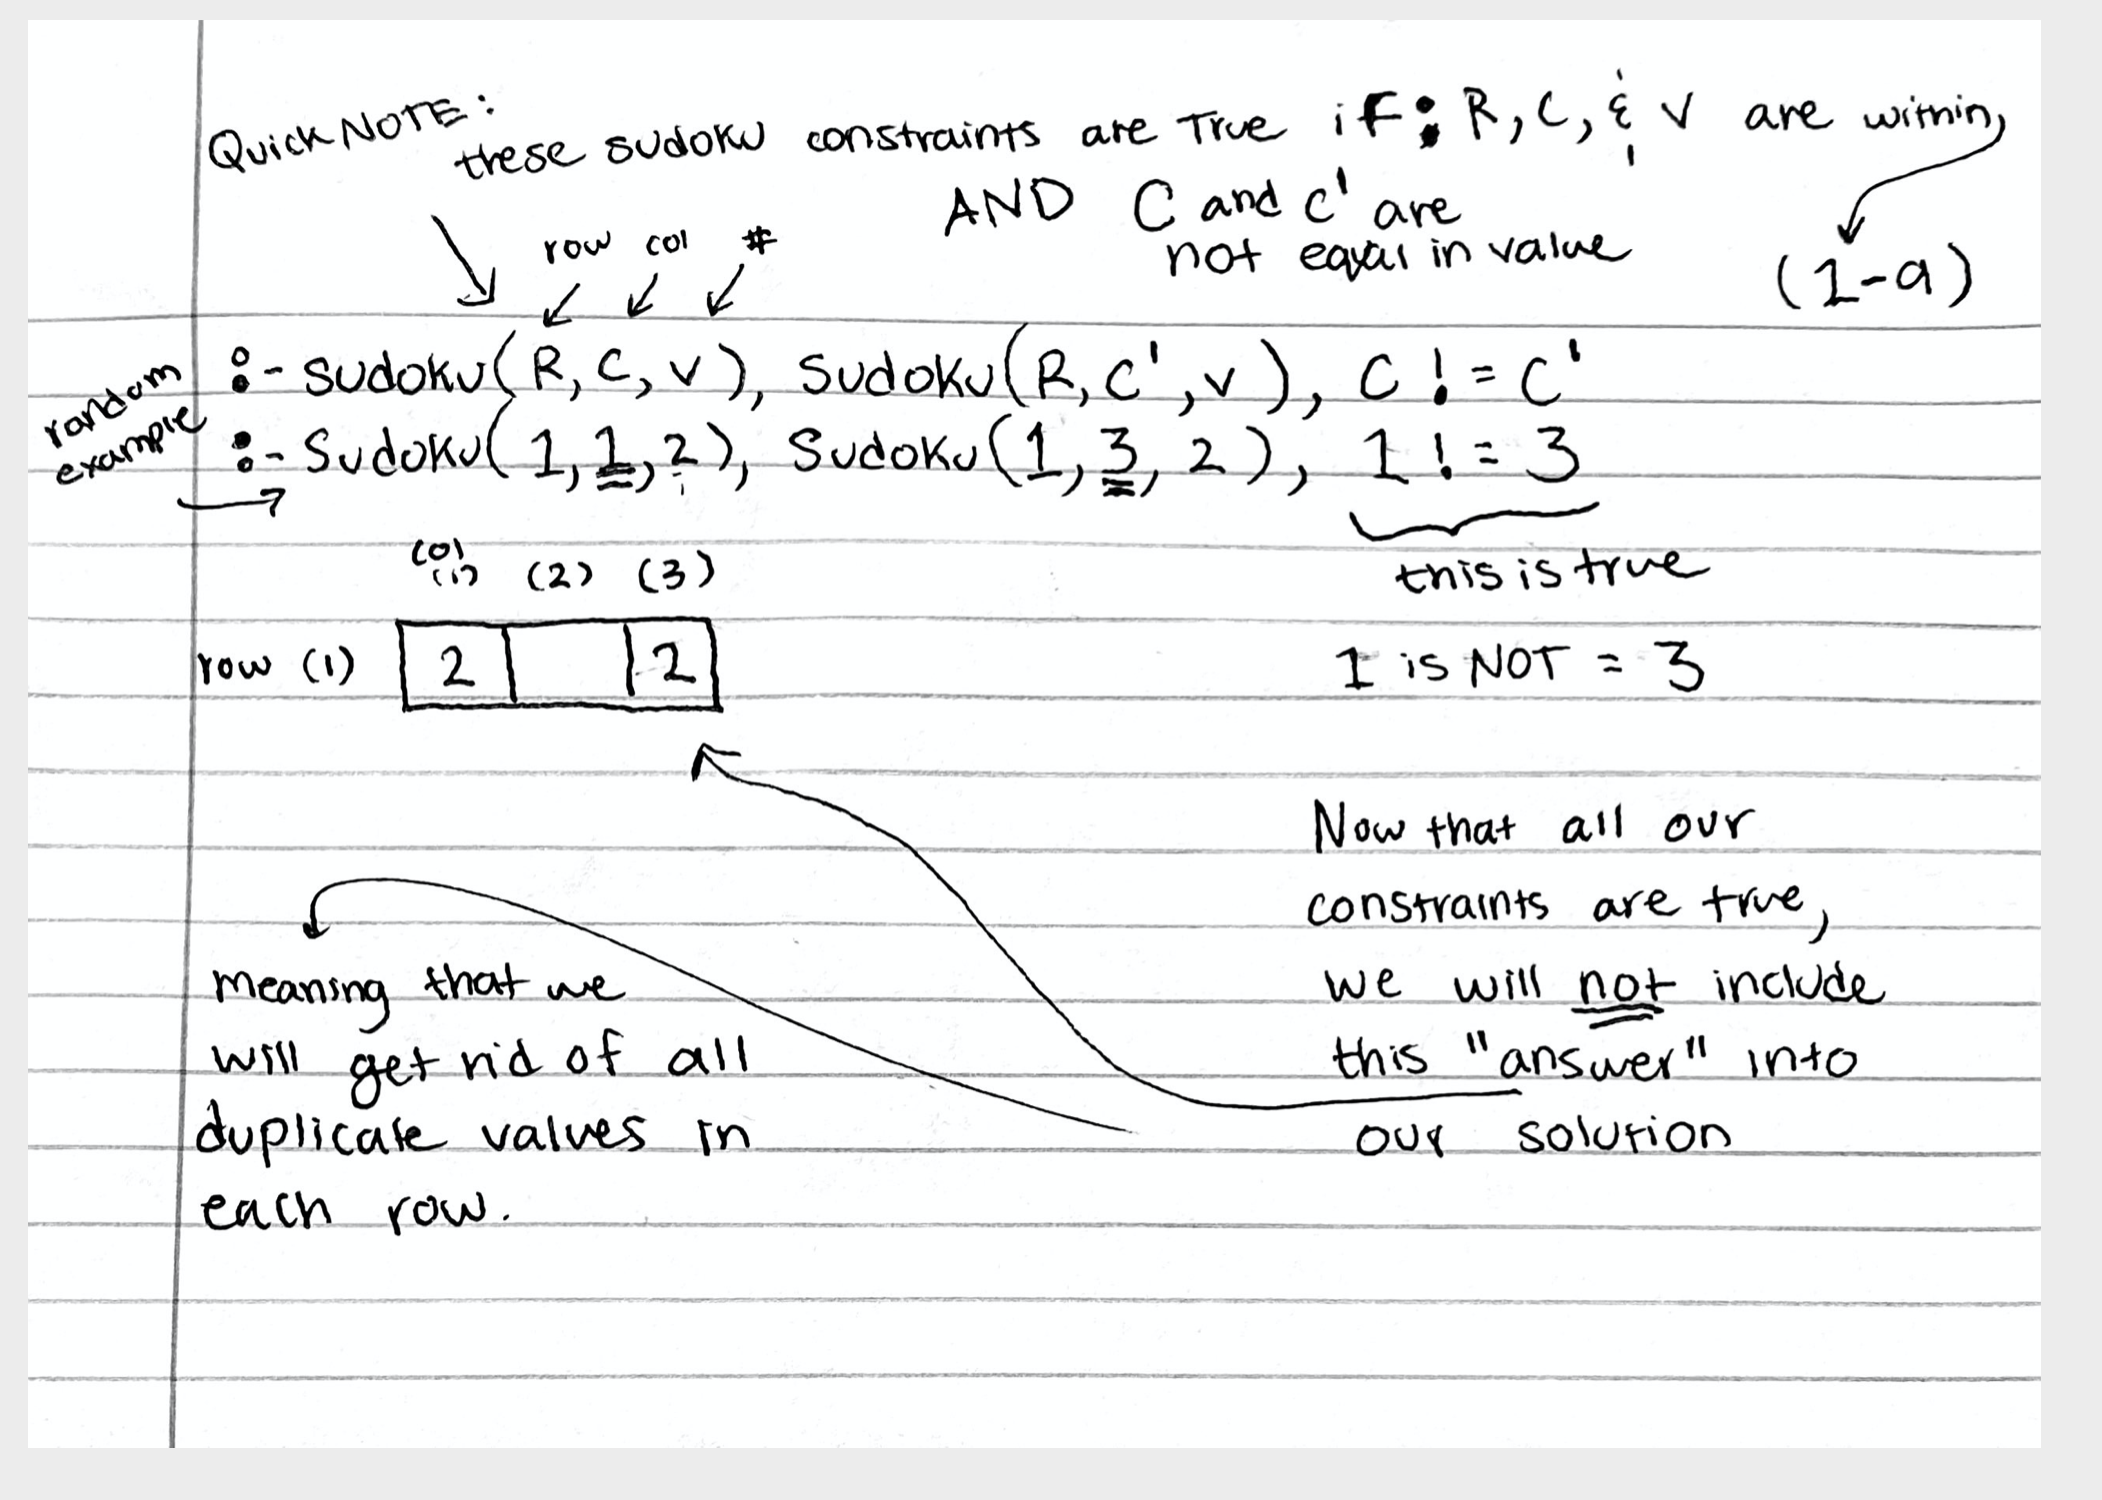 Quick NOTE:
these sudoku constraints are True if: R, C, & V are within,
AND C and C' are
not equal in value
(1-9)
row col #
:- sudoku(R, C, V), Sudoku(R, C', V), C != C'
random
example
:- Sudoku(1, 1, 2), Sudoku(1, 3, 2), 1 != 3
this is true
col
(1) (2) (3)
row (1) 2 2
1 is NOT = 3
Now that all our
constraints are true,
we will not include
this "answer" into
our solution
meaning that we
will get rid of all
duplicate values in
each row.